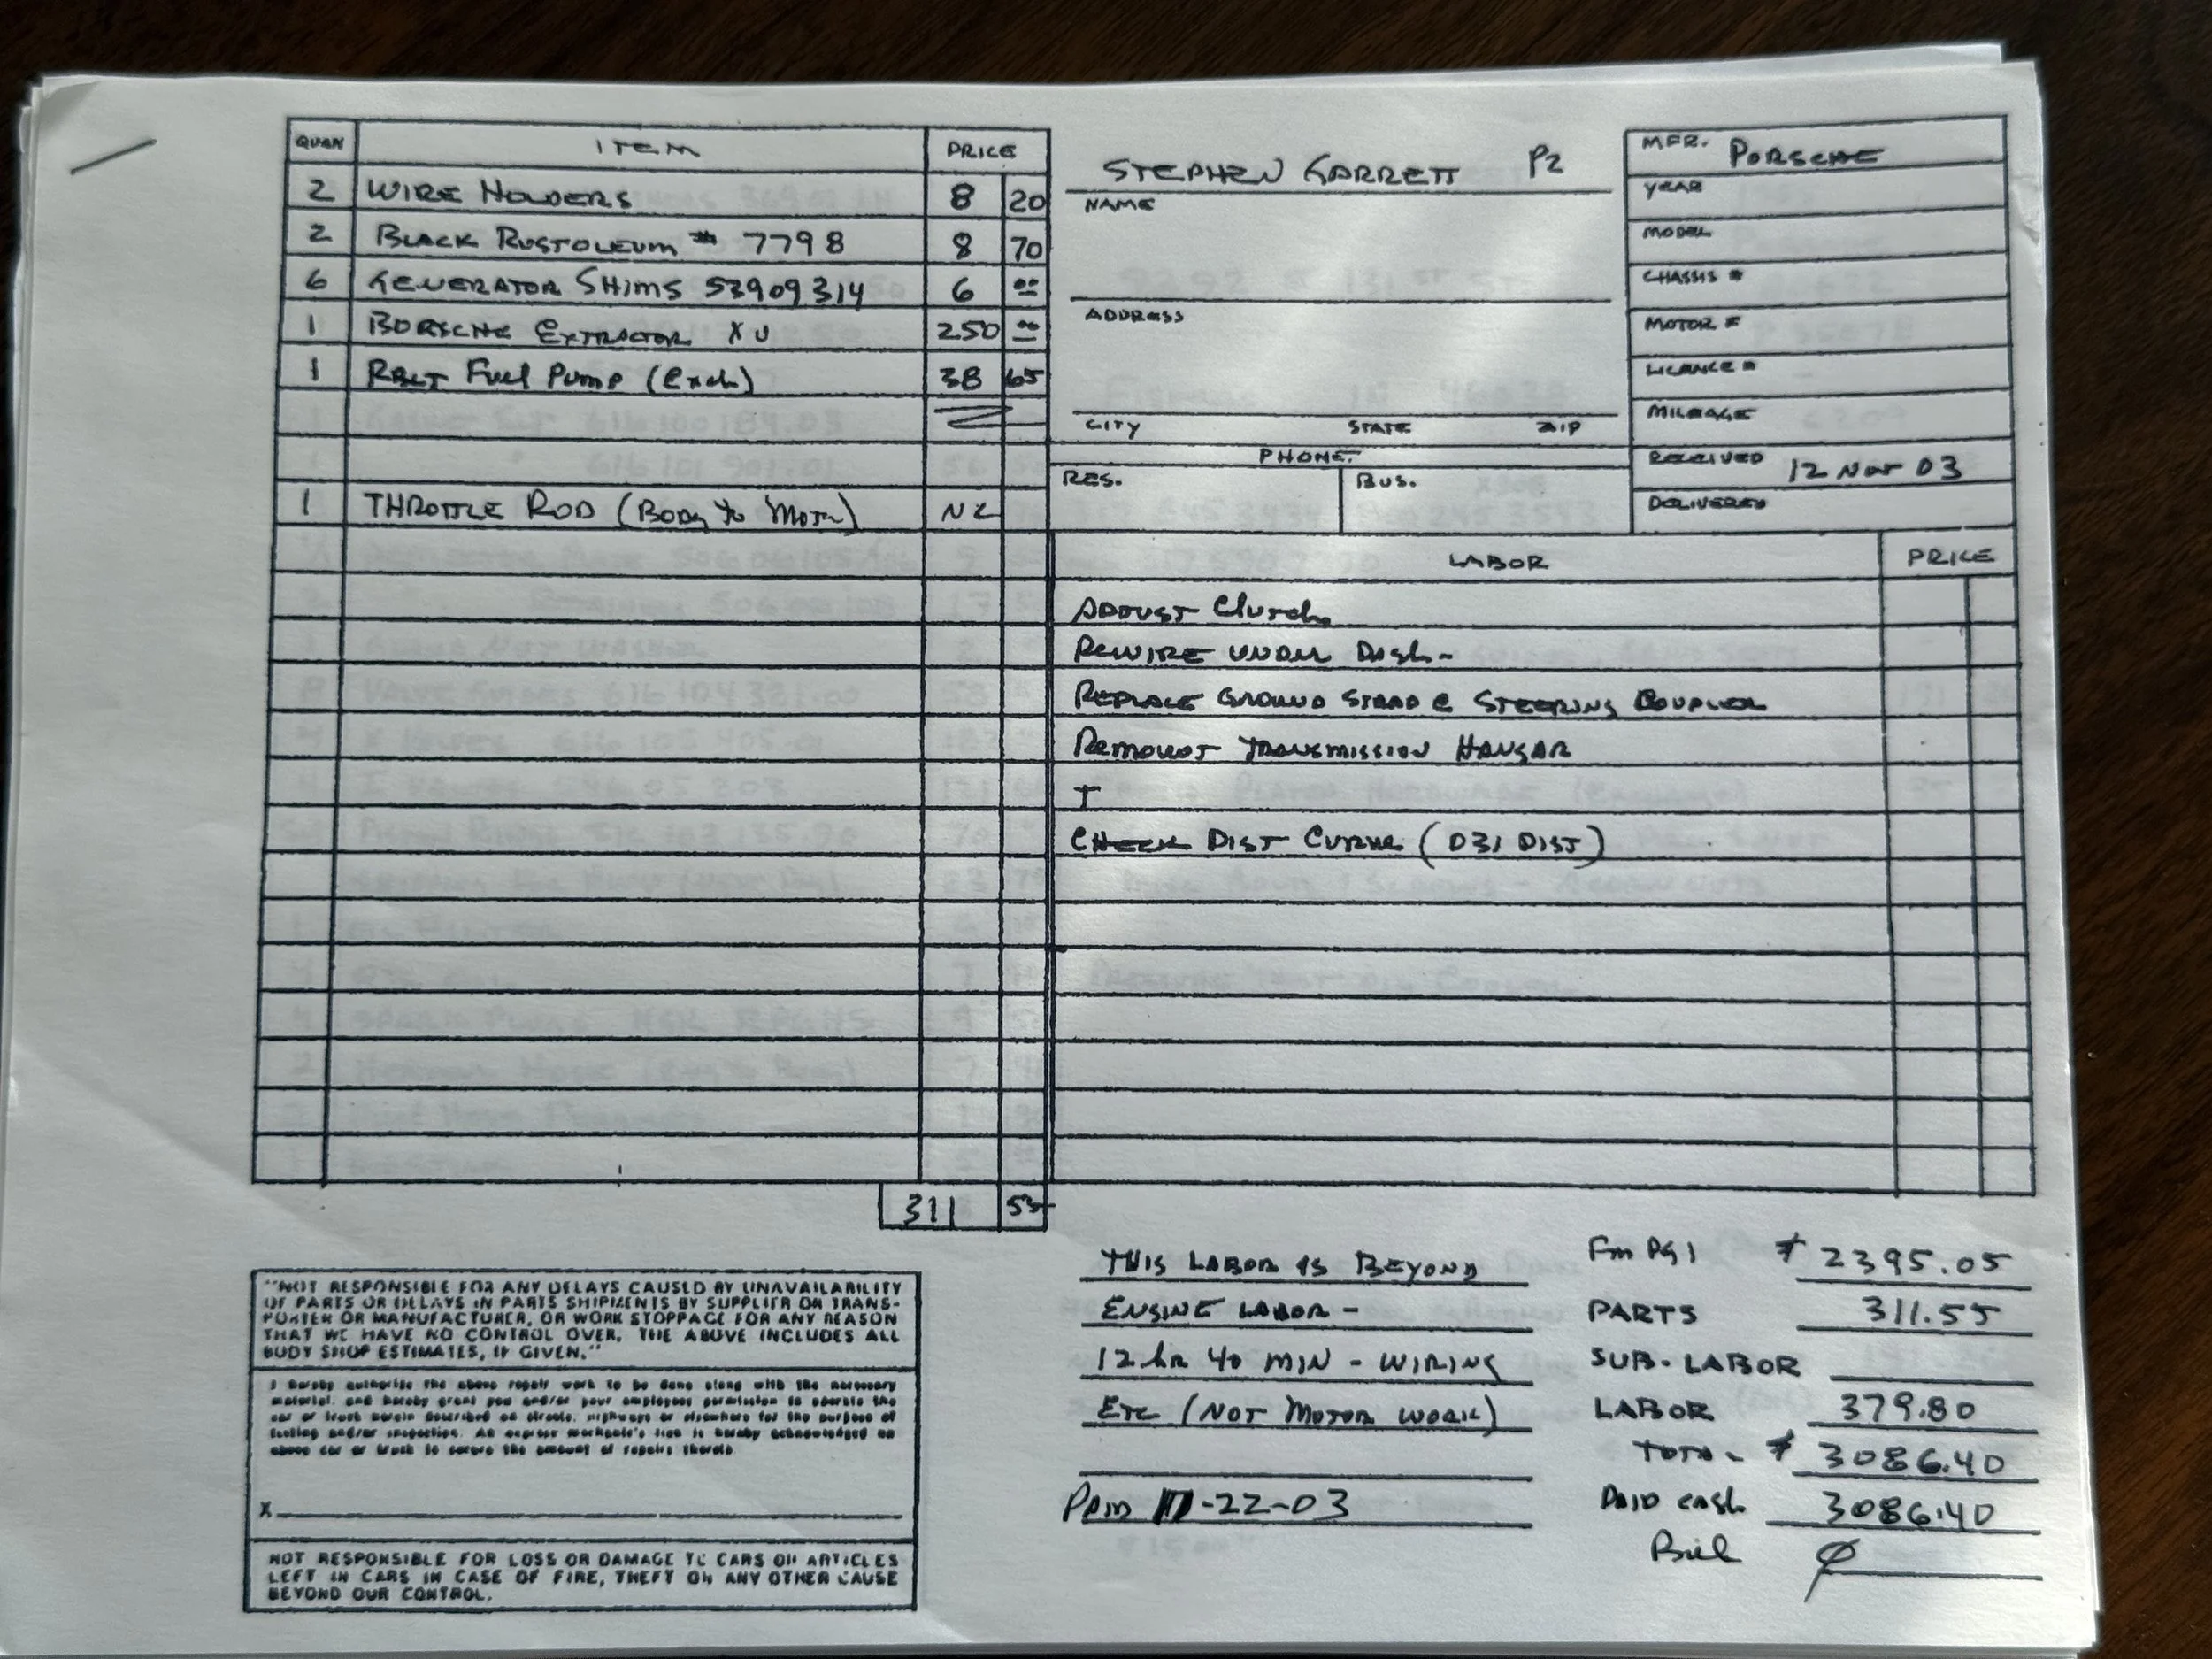 QUAN ITEM PRICE
2 WIRE HOLDERS 8 20
2 BLACK RUSTOLEUM # 7798 8 70
6 GENERATOR SHIMS 53909314 6 00
1 BORSCHE EXTRACTOR XU 250 00
1 RBLT Fuel Pump (Exch) 38 65
1 THROTTLE ROD (Body to Motor) NC
311 55
STEPHEN GARRETT P2
NAME
ADDRESS
CITY STATE ZIP
PHONE
RES. BUS.
MFR. PORSCHE
YEAR
MODEL
CHASSIS #
MOTOR #
LICENCE #
MILEAGE
RECEIVED 12 Nov 03
DELIVERED
LABOR PRICE
ADJUST Clutch
REWIRE UNDER Dash-
REPLACE GROUND STRAP @ STEERING COUPLER
REMOUNT TRANSMISSION HANGAR
T
CHECK DIST CURVE (031 DIST)
"NOT RESPONSIBLE FOR ANY DELAYS CAUSED BY UNAVAILABILITY
OF PARTS OR DELAYS IN PARTS SHIPMENTS BY SUPPLIER OR TRANS-
PORTER OR MANUFACTURER, OR WORK STOPPAGE FOR ANY REASON
THAT WE HAVE NO CONTROL OVER. THE ABOVE INCLUDES ALL
BODY SHOP ESTIMATES, IF GIVEN."
I hereby authorize the above repair work to be done along with the necessary
material, and hereby grant you and/or your employees permission to operate the
car or truck herein described on streets, highways or elsewhere for the purpose of
testing and/or inspection. An express mechanic's lien is hereby acknowledged on
above car or truck to secure the amount of repairs thereto
X
NOT RESPONSIBLE FOR LOSS OR DAMAGE TO CARS OR ARTICLES
LEFT IN CARS IN CASE OF FIRE, THEFT OR ANY OTHER CAUSE
BEYOND OUR CONTROL.
THIS LABOR IS BEYOND
ENGINE LABOR -
12 hr 40 MIN - WIRING
ETC (NOT MOTOR WORK)
PAID 11-22-03
Fm PG 1 $ 2395.05
PARTS 311.55
SUB-LABOR
LABOR 379.80
TOTAL $ 3086.40
PAID cash 3086.40